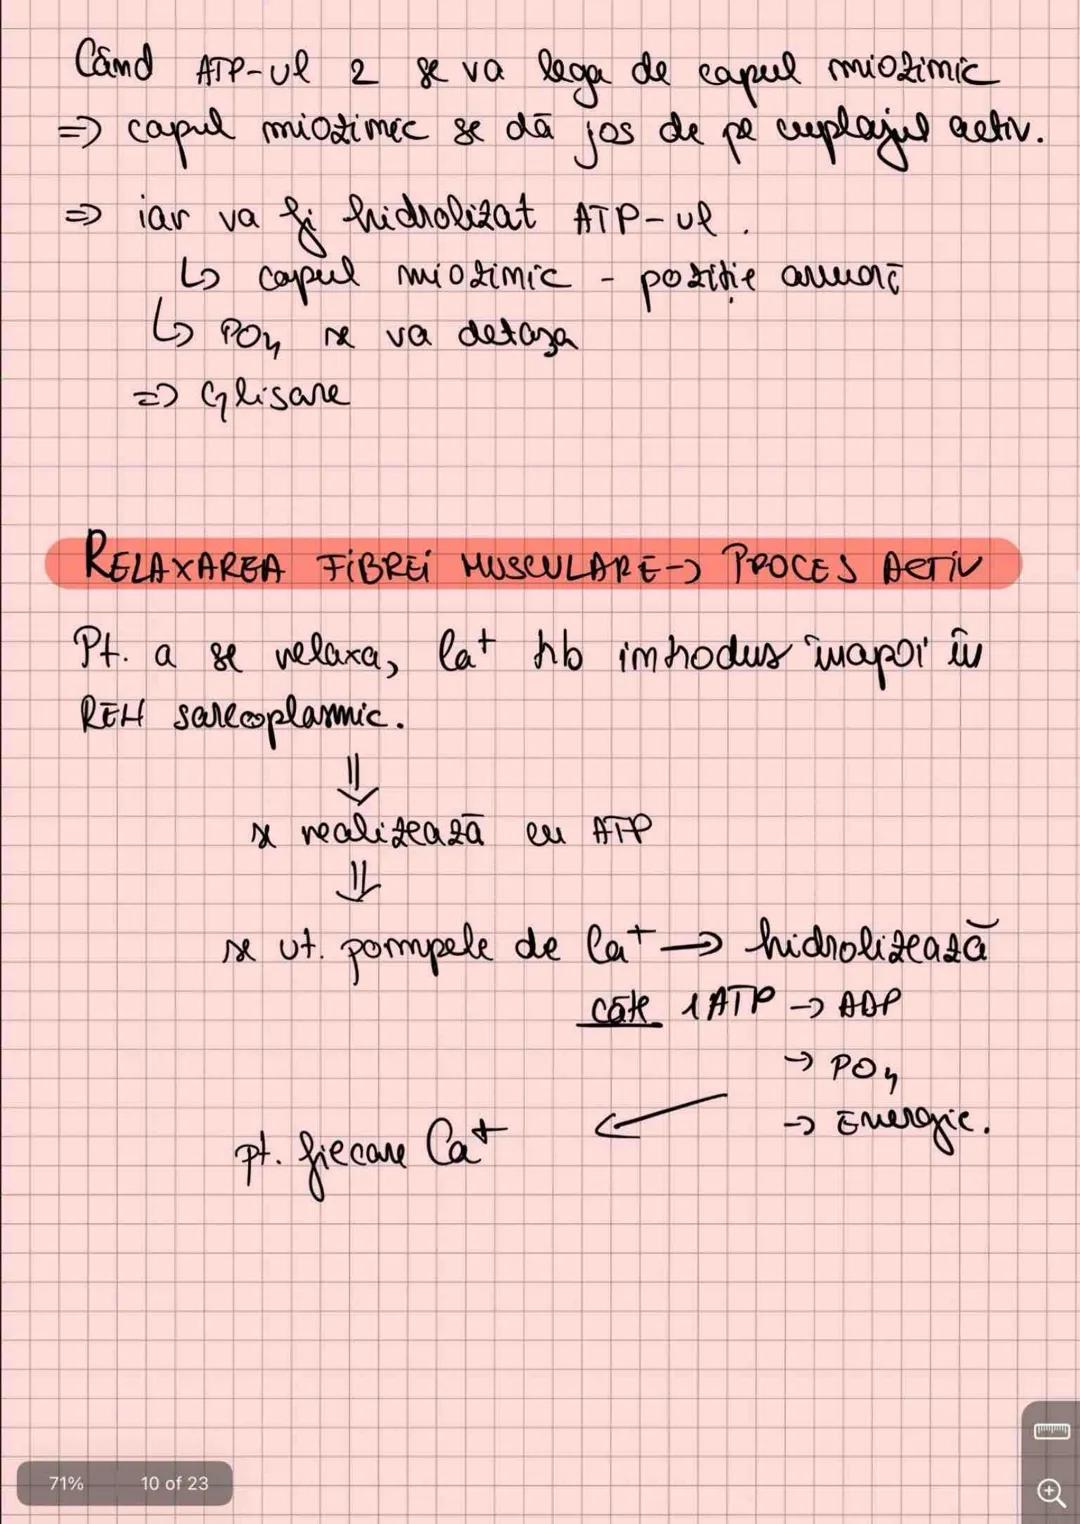 Când ATP-ul 2 se va lega de capul miozinic
=> capul miozinic se dă jos de pe cuplajul activ.
=> iar va fi hidrolizat ATP-ul.
↳ capul miozinic - poziție armată
↳ PO4 se va detașa
=> Glisare
RELAXAREA FIBREI MUSCULARE -> PROCES ACTIV
Pt. a se relaxa, Ca+ trb introdus înapoi în
REH sarcoplasmic.
⇓
se realizează cu ATP
⇓
se ut. pompele de Ca+ -> hidrolizează
câte 1 ATP -> ADP
-> PO4
-> Energie.
pt. fiecare Ca+
71% 10 of 23